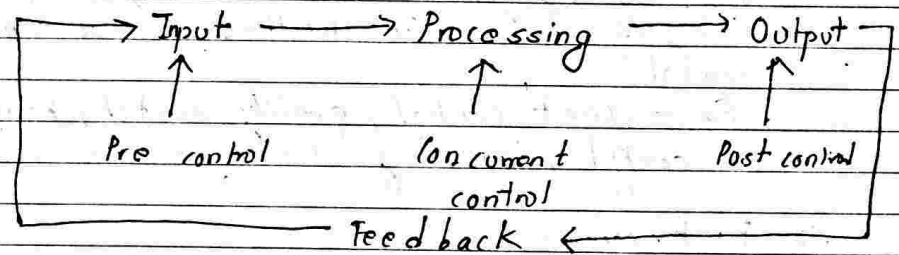 Input Processing Output
Pre control Concurrent Post control
control
Feedback